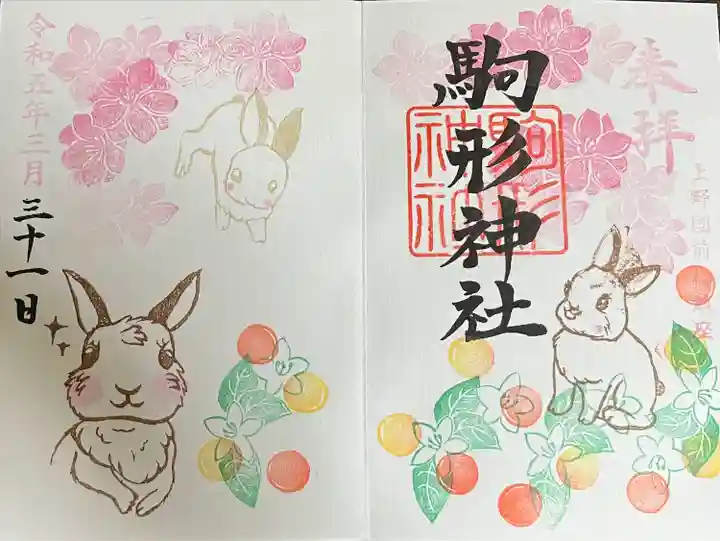 奉拝
上野国前
駒形神社
駒形
神社
令和五年三月
三十一日